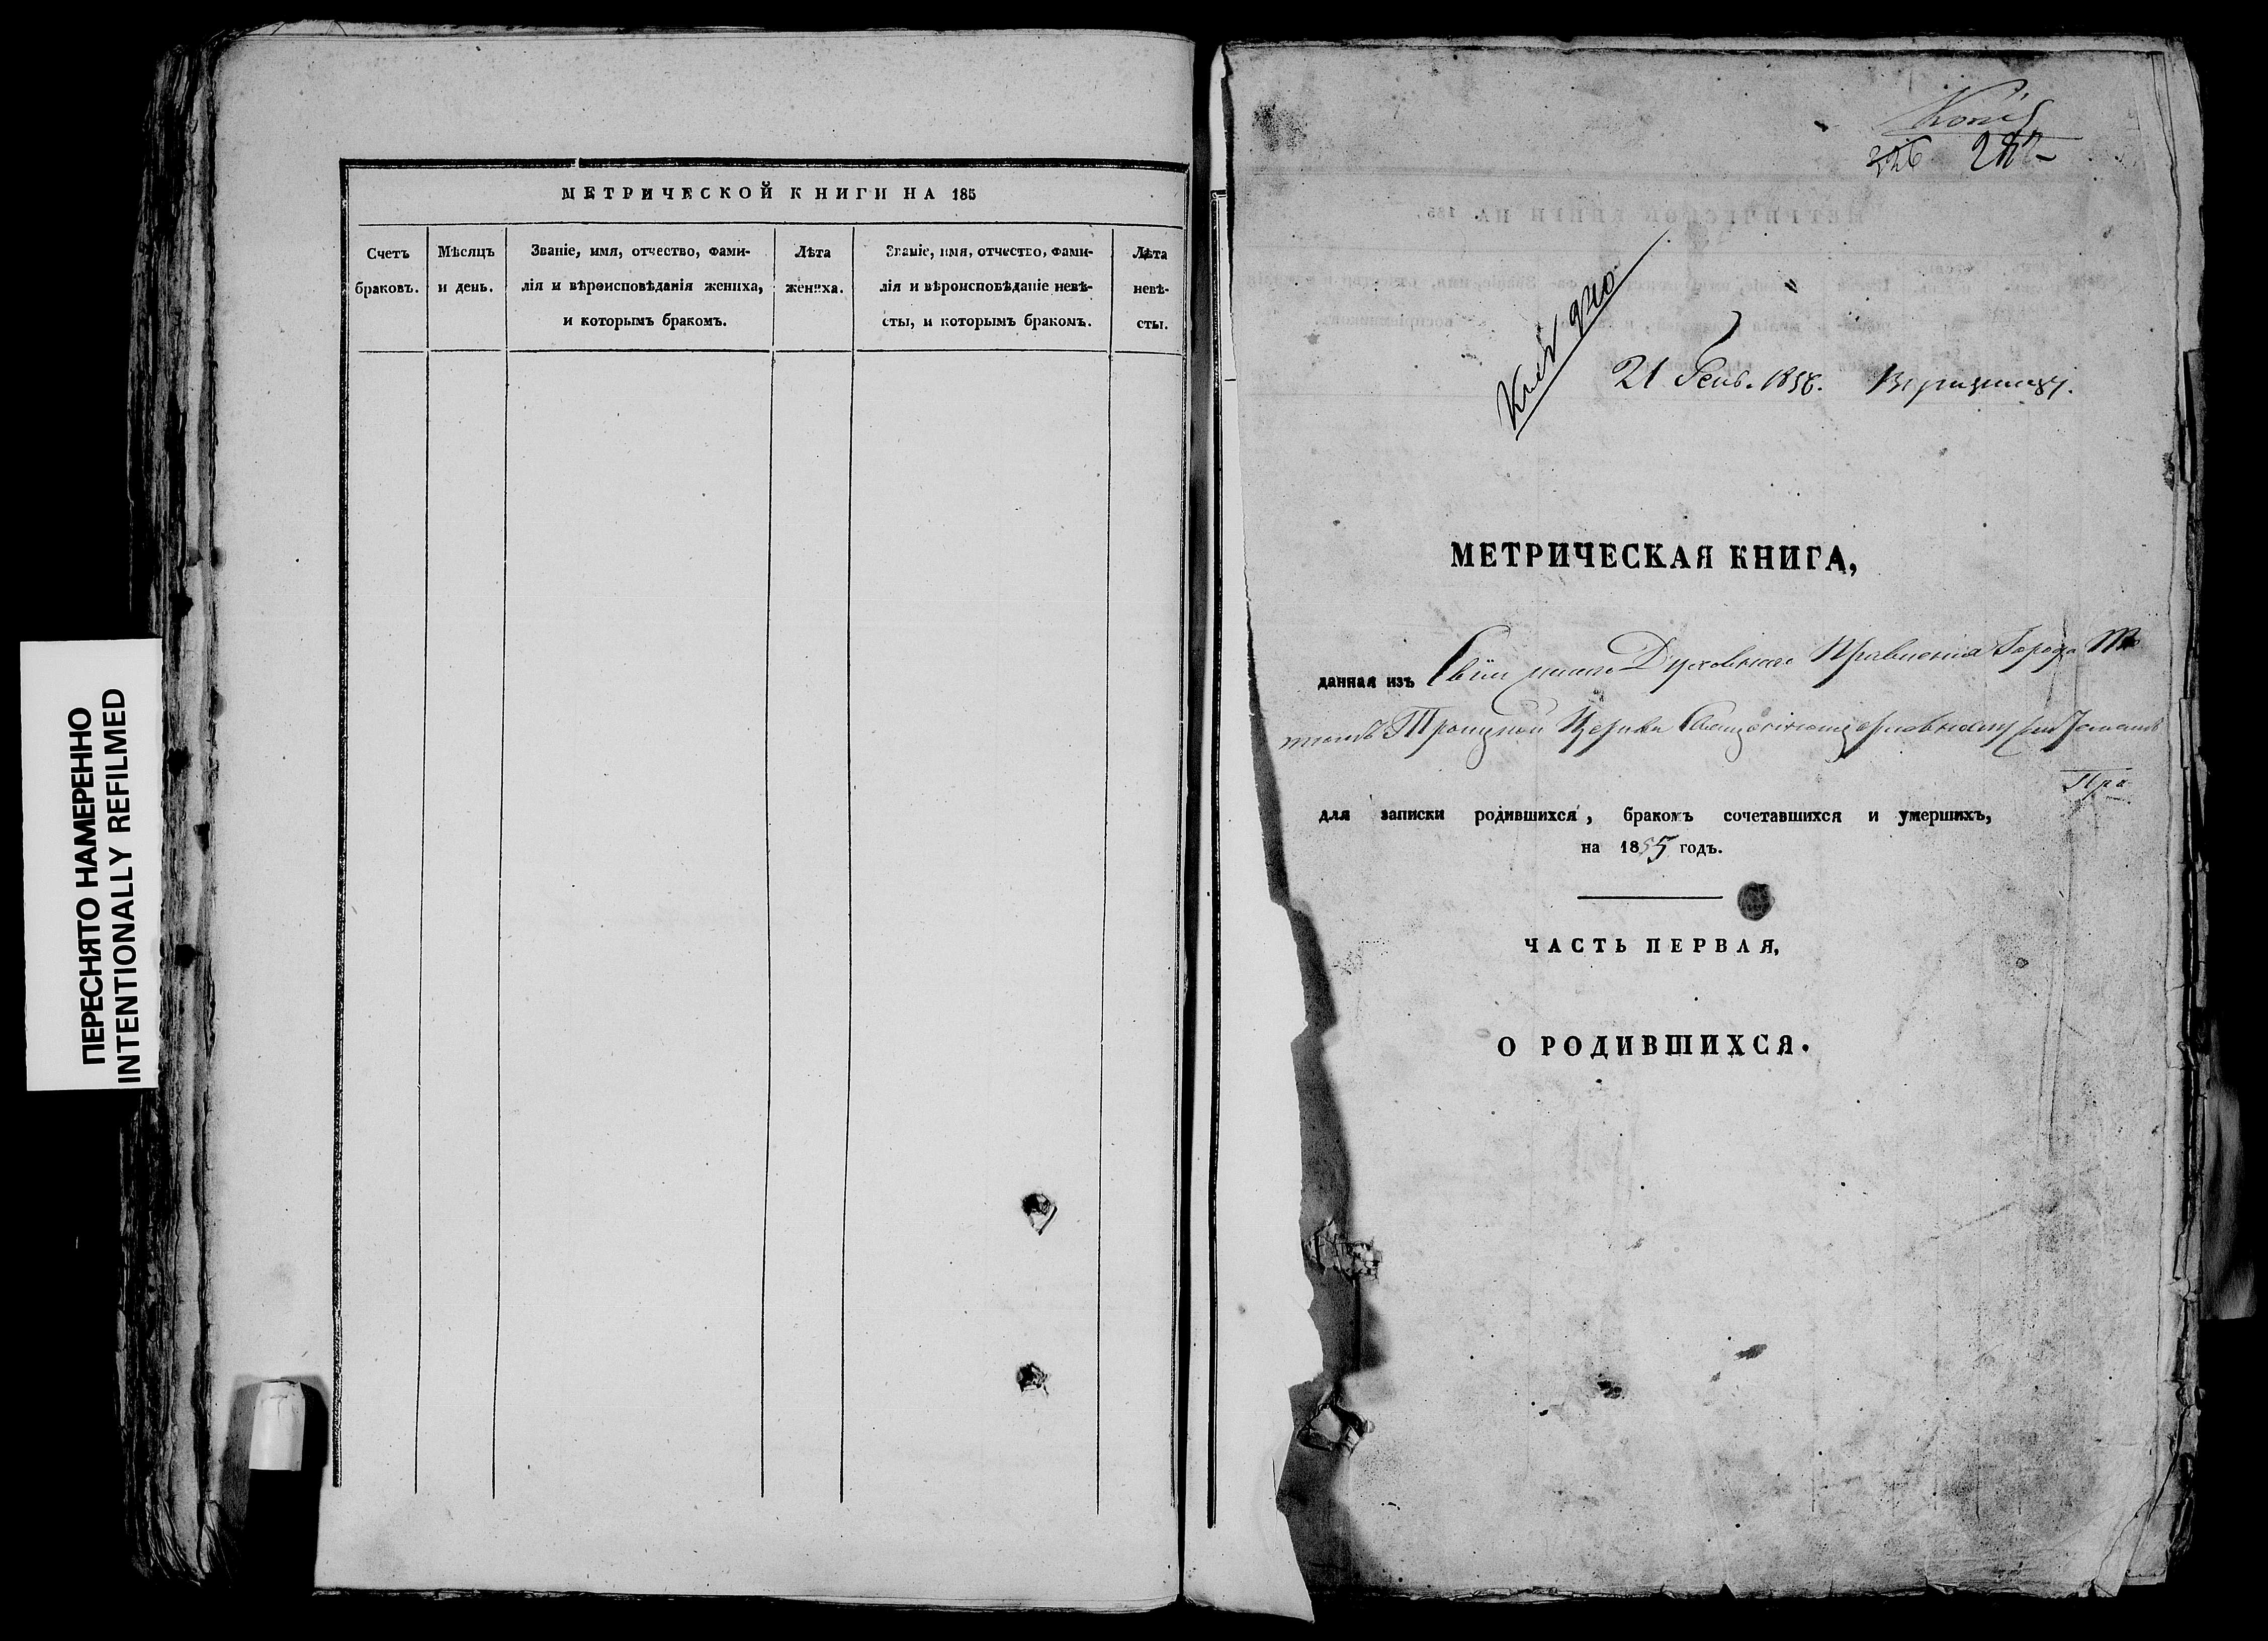 ПЕРЕСНЯТО НАМЕРЕННО
INTENTIONALLY REFILMED
МЕТРИЧЕСКОЙ КНИГИ НА 185
Счетъ браковъ.
Мѣсяцъ и день.
Званіе, имя, отчество, фами-
лія и вѣроисповѣданія жениха,
и которымъ бракомъ.
Лѣта жениха.
Званіе, имя, отчество, фами-
лія и вѣроисповѣданіе невѣ-
сты, и которымъ бракомъ.
Лѣта невѣ-
сты.
Копія
326
21 Генв. 1856.
МЕТРИЧЕСКАЯ КНИГА,
данная изъ Духовнаго Правленія Города
Троицкой Церкви Священноцерковнослужителямъ
для записки родившихся, бракомъ сочетавшихся и умершихъ,
на 1855 годъ.
ЧАСТЬ ПЕРВАЯ,
О РОДИВШИХСЯ.